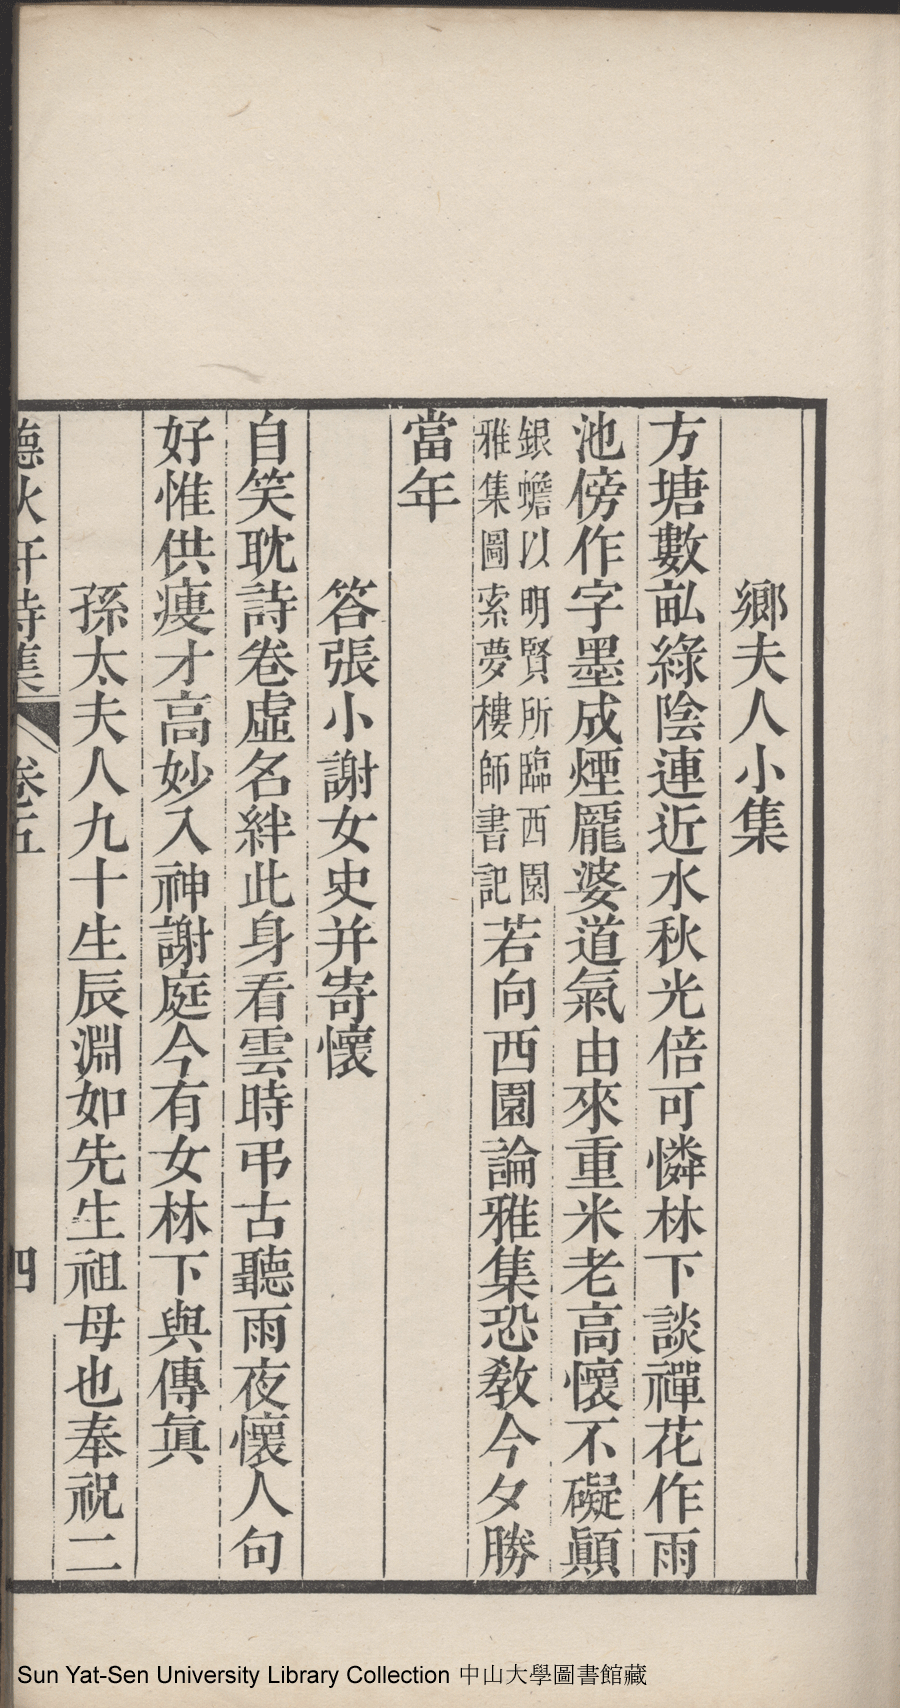 鄉夫人小集
方塘數畝綠陰連近水秋光倍可憐林下談禪花作雨
池傍作字墨成煙龐婆道氣由來重米老高懷不礙顛
銀蟾以明賢所臨西園
雅集圖索夢樓師書記
若向西園論雅集恐教今夕勝
當年
答張小謝女史并寄懷
自笑耽詩卷虛名絆此身看雲時弔古聽雨夜懷人句
好惟供瘦才高妙入神謝庭今有女林下與傳眞
孫太夫人九十生辰淵如先生祖母也奉祝二
聽秋軒詩集
卷五
四
Sun Yat-Sen University Library Collection 中山大學圖書館藏